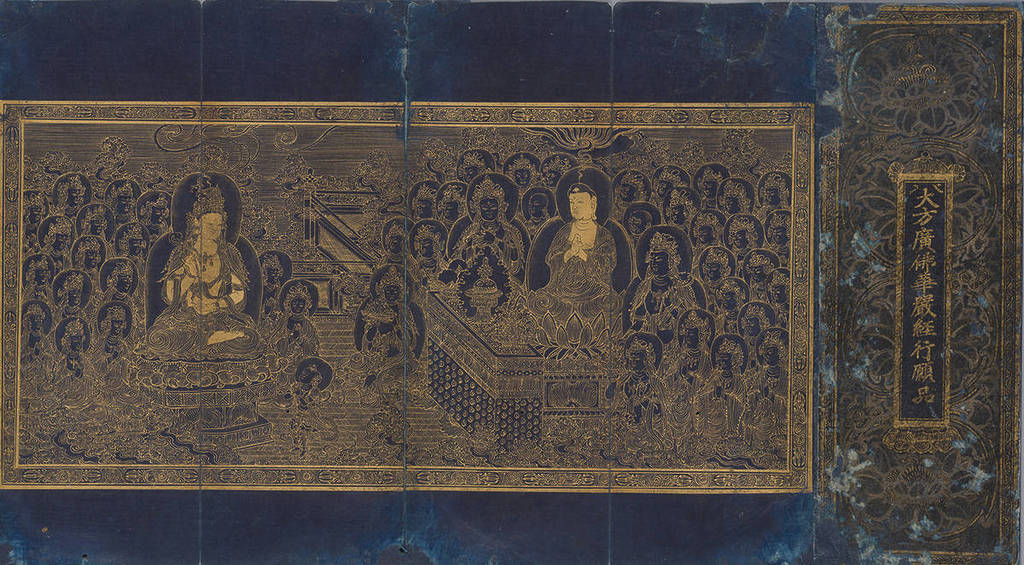 大方廣佛華嚴經行願品